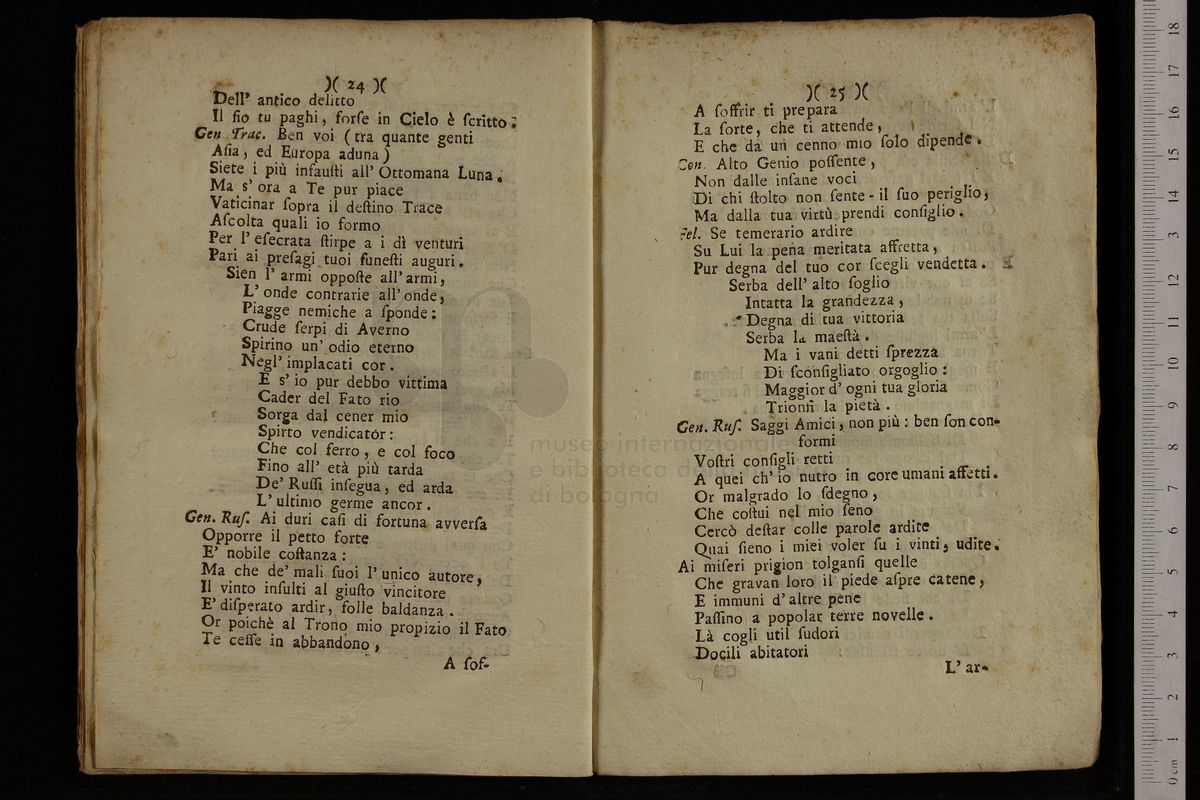 )( 24 )(
Dell' antico delitto
Il fio tu paghi, forſe in Cielo è ſcritto.
Gen. Trac. Ben voi (tra quante genti
Aſia, ed Europa aduna)
Siete i più infauſti all' Ottomana Luna.
Ma s' ora a Te pur piace
Vaticinar ſopra il deſtino Trace
Aſcolta quali io formo
Per l' eſecrata ſtirpe a i dì venturi
Pari ai preſagi tuoi funeſti auguri.
Sien l' armi oppoſte all' armi,
L' onde contrarie all' onde,
Piagge nemiche a ſponde:
Crude ſerpi di Averno
Spirino un' odio eterno
Negl' implacati cor.
E s' io pur debbo vittima
Cader del Fato rio
Sorga dal cener mio
Spirto vendicatòr:
Che col ferro, e col foco
Fino all' età più tarda
De' Ruſſi inſegua, ed arda
L' ultimo germe ancor.
Gen. Ruſ. Ai duri caſi di fortuna avverſa
Opporre il petto forte
E' nobile coſtanza:
Ma che de' mali ſuoi l' unico autore,
Il vinto inſulti al giuſto vincitore
E' diſperato ardir, folle baldanza.
Or poichè al Trono mio propizio il Fato
Te ceſſe in abbandono,
A ſof-
)( 25 )(
A ſoffrir ti prepara
La ſorte, che ti attende,
E che da un cenno mio ſolo dipende.
Cen. Alto Genio poſſente,
Non dalle inſane voci
Di chi ſtolto non ſente - il ſuo periglio,
Ma dalla tua virtù prendi conſiglio.
Fel. Se temerario ardire
Su Lui la pena meritata affretta,
Pur degna del tuo cor ſcegli vendetta.
Serba dell' alto ſoglio
Intatta la grandezza,
Degna di tua vittoria
Serba la maeſtà.
Ma i vani detti ſprezza
Di ſconſigliato orgoglio:
Maggior d' ogni tua gloria
Trionfi la pietà.
Gen. Ruſ. Saggi Amici, non più: ben ſon con-
formi
Voſtri conſigli retti
A quei ch' io nutro in core umani affetti.
Or malgrado lo ſdegno,
Che coſtui nel mio ſeno
Cercò deſtar colle parole ardite
Quai ſieno i miei voler ſu i vinti, udite.
Ai miſeri prigion tolganſi quelle
Che gravan loro il piede aſpre catene,
E immuni d' altre pene
Paſſino a popolar terre novelle.
Là cogli util ſudori
Docili abitatori
L' ar-
museo internazionale
e biblioteca della musica
di bologna
0 cm 1 2 3 4 5 6 7 8 9 10 11 12 13 14 15 16 17 18